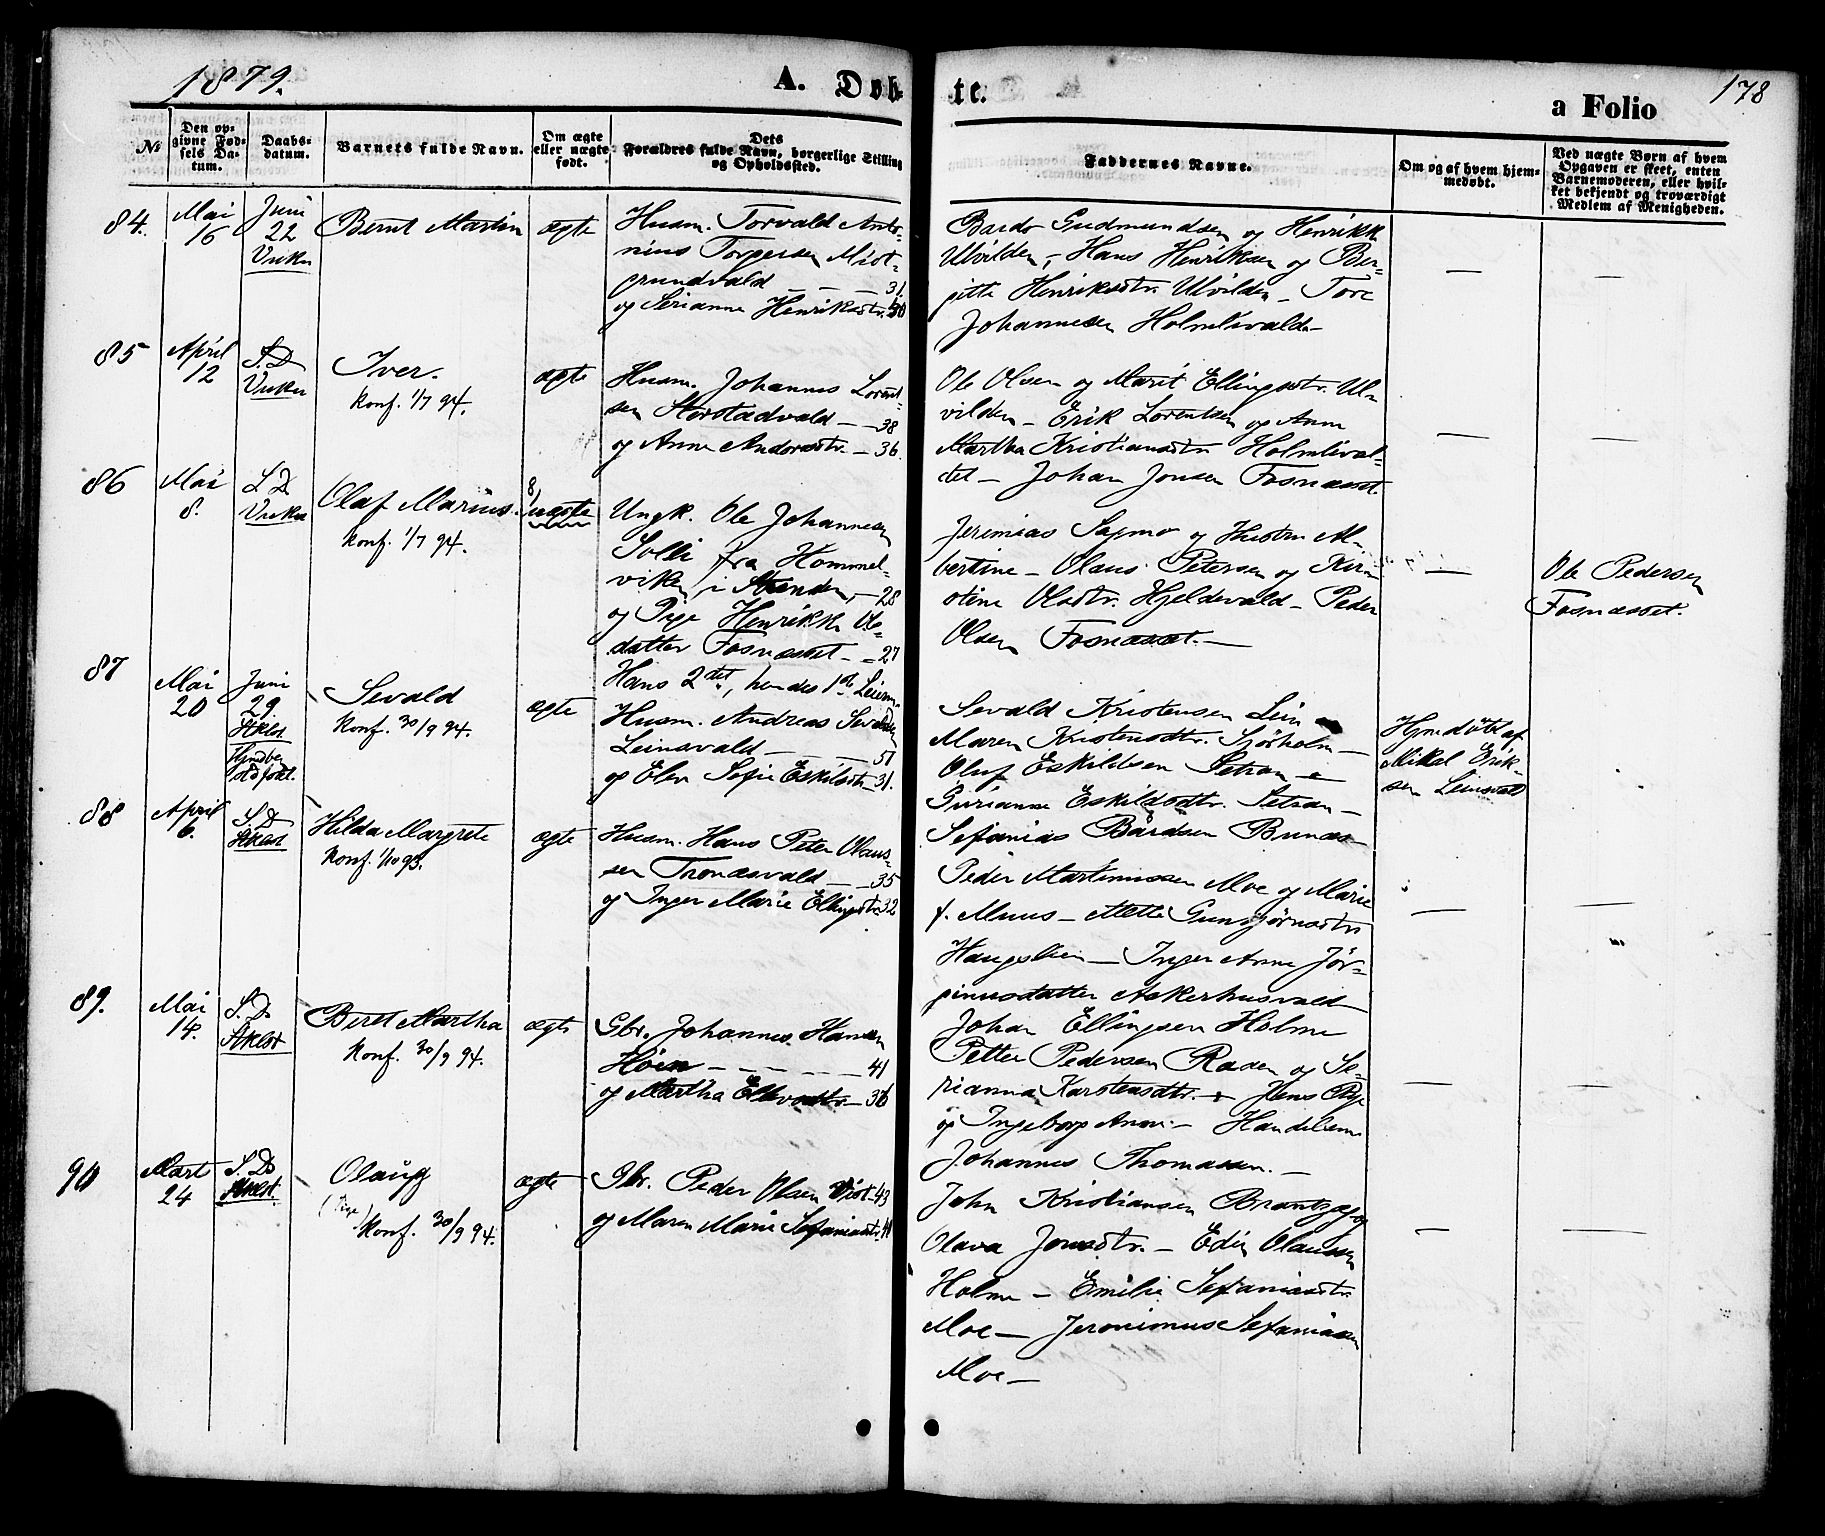 1879.
A. Døb-
te.
a Folio
178
No
Den op-
givne Fød-
sels Da-
tum.
Daabs-
datum.
Barnets fulde Navn.
Om ægte
eller uægte
født.
Dets
Forældres fulde Navn, borgerlige Stilling
og Opholdssted.
Faddernes Navne.
Om og af hvem hjem-
medøbt.
Ved uægte Børn af hvem
Opgaven er skeet, enten
Barnemoderen, eller hvil-
ket bekjendt og troværdigt
Medlem af Menigheden.
84.
Mai
16
Juni
22
Vuku
Bernt Martin
ægte
Husm. Torvald Anto-
nius Torgersen Midt-
grundvald - - - 31.
og Serianna Henriksdtr. 30
Bardo Gudmundsen og Henrikke
Ulvilden, - Hans Henriksen og Ber-
gitte Henriksdtr. Ulvilden - Tore
Johannesen Holmlivald -
85
April
12
S. D.
Vuku
Iver.
Konf. 1/7 94.
ægte
Husm. Johannes Lorent-
sen Storstadvald - - 38
og Anne Andersdtr. - 36.
Ole Olsen og Marit Ellingsdtr. Ul-
vilden - Erik Lorentsen og Anne
Martha Kristiansdtr Holmlival-
det - Johan Jonsen Fosnæsset.
86
Mai
8.
S. D.
Vuku
Olaf Marius.
Konf. 1/7 94.
uægte
Ungk. Ole Johannesen
Solli fra Hommel-
viken i Stranden, - 28
og Pige Henrikke Ols-
datter Fosnæsset - - 27
Hans 2det, hendes 1ste Leierm.
Jeremias Sagmo og Hustru Al-
bertine - Olaus Petersen og Kir-
stine Olsdtr. Hjeldevald - Peder
Olsen Fosnæsset. -
Ole Pedersen
Fosnæsset.
87
Mai
20
Juni
29
Stklst.
Hjmdben
stdfæst.
Sevald
Konf. 30/9 94.
ægte
Husm. Andreas Sevaldsen
Leinsvald - - - 51
og Elen Sofie Eskildsdtr - 31.
Sevald Kristensen Lein
Maren Kristensdtr. Sjørholm -
Oluf Eskildsen Setran -
Gurianna Eskildsdtr. Setran -
Sefanias Bårdsen Bunæs -
Hjmdøbt af
Mikal Erik-
sen Leinsvald
88
April
6.
S. D
Stklst
Hilda Margrete
Konf. 1/10 93.
ægte
Husm. Hans Peter Olaus-
sen Tronæsvald - - 35
og Inger Marie Ellingsdtr. 32
Peder Martinussen Moe og Marie
f. Muus - Mette Gunbjørnsdtr
Haugslien - Inger Anna Jør-
ginusdatter Askerhusvald -
Johan Ellingsen Holme
89.
Mai
14.
S. D.
Stklst
Beret Martha
Konf. 30/9 94.
ægte
Gbr. Johannes Hansen
Høin - - - - - 41
og Martha Ellevsdtr. - 36
Petter Pedersen Raaen og Se-
rianna Karstensdtr. - Jens Rye
og Ingeborg Anna - Handelsm.
Johannes Thomassen. -
90
Mart
24
S. D.
Stklst.
Olaug
(Pige)
Konf. 30/9 94.
ægte
Gbr. Peder Olsen Vist - 43
og Maren Marie Sefaniasdtr. 41
John Kristiansen Brantzæg og
Olava Jonsdtr. - Edin Olaussen
Holme - Emilie Sefaniasdtr.
Moe - Jeronimus Sefaniassen
Moe -